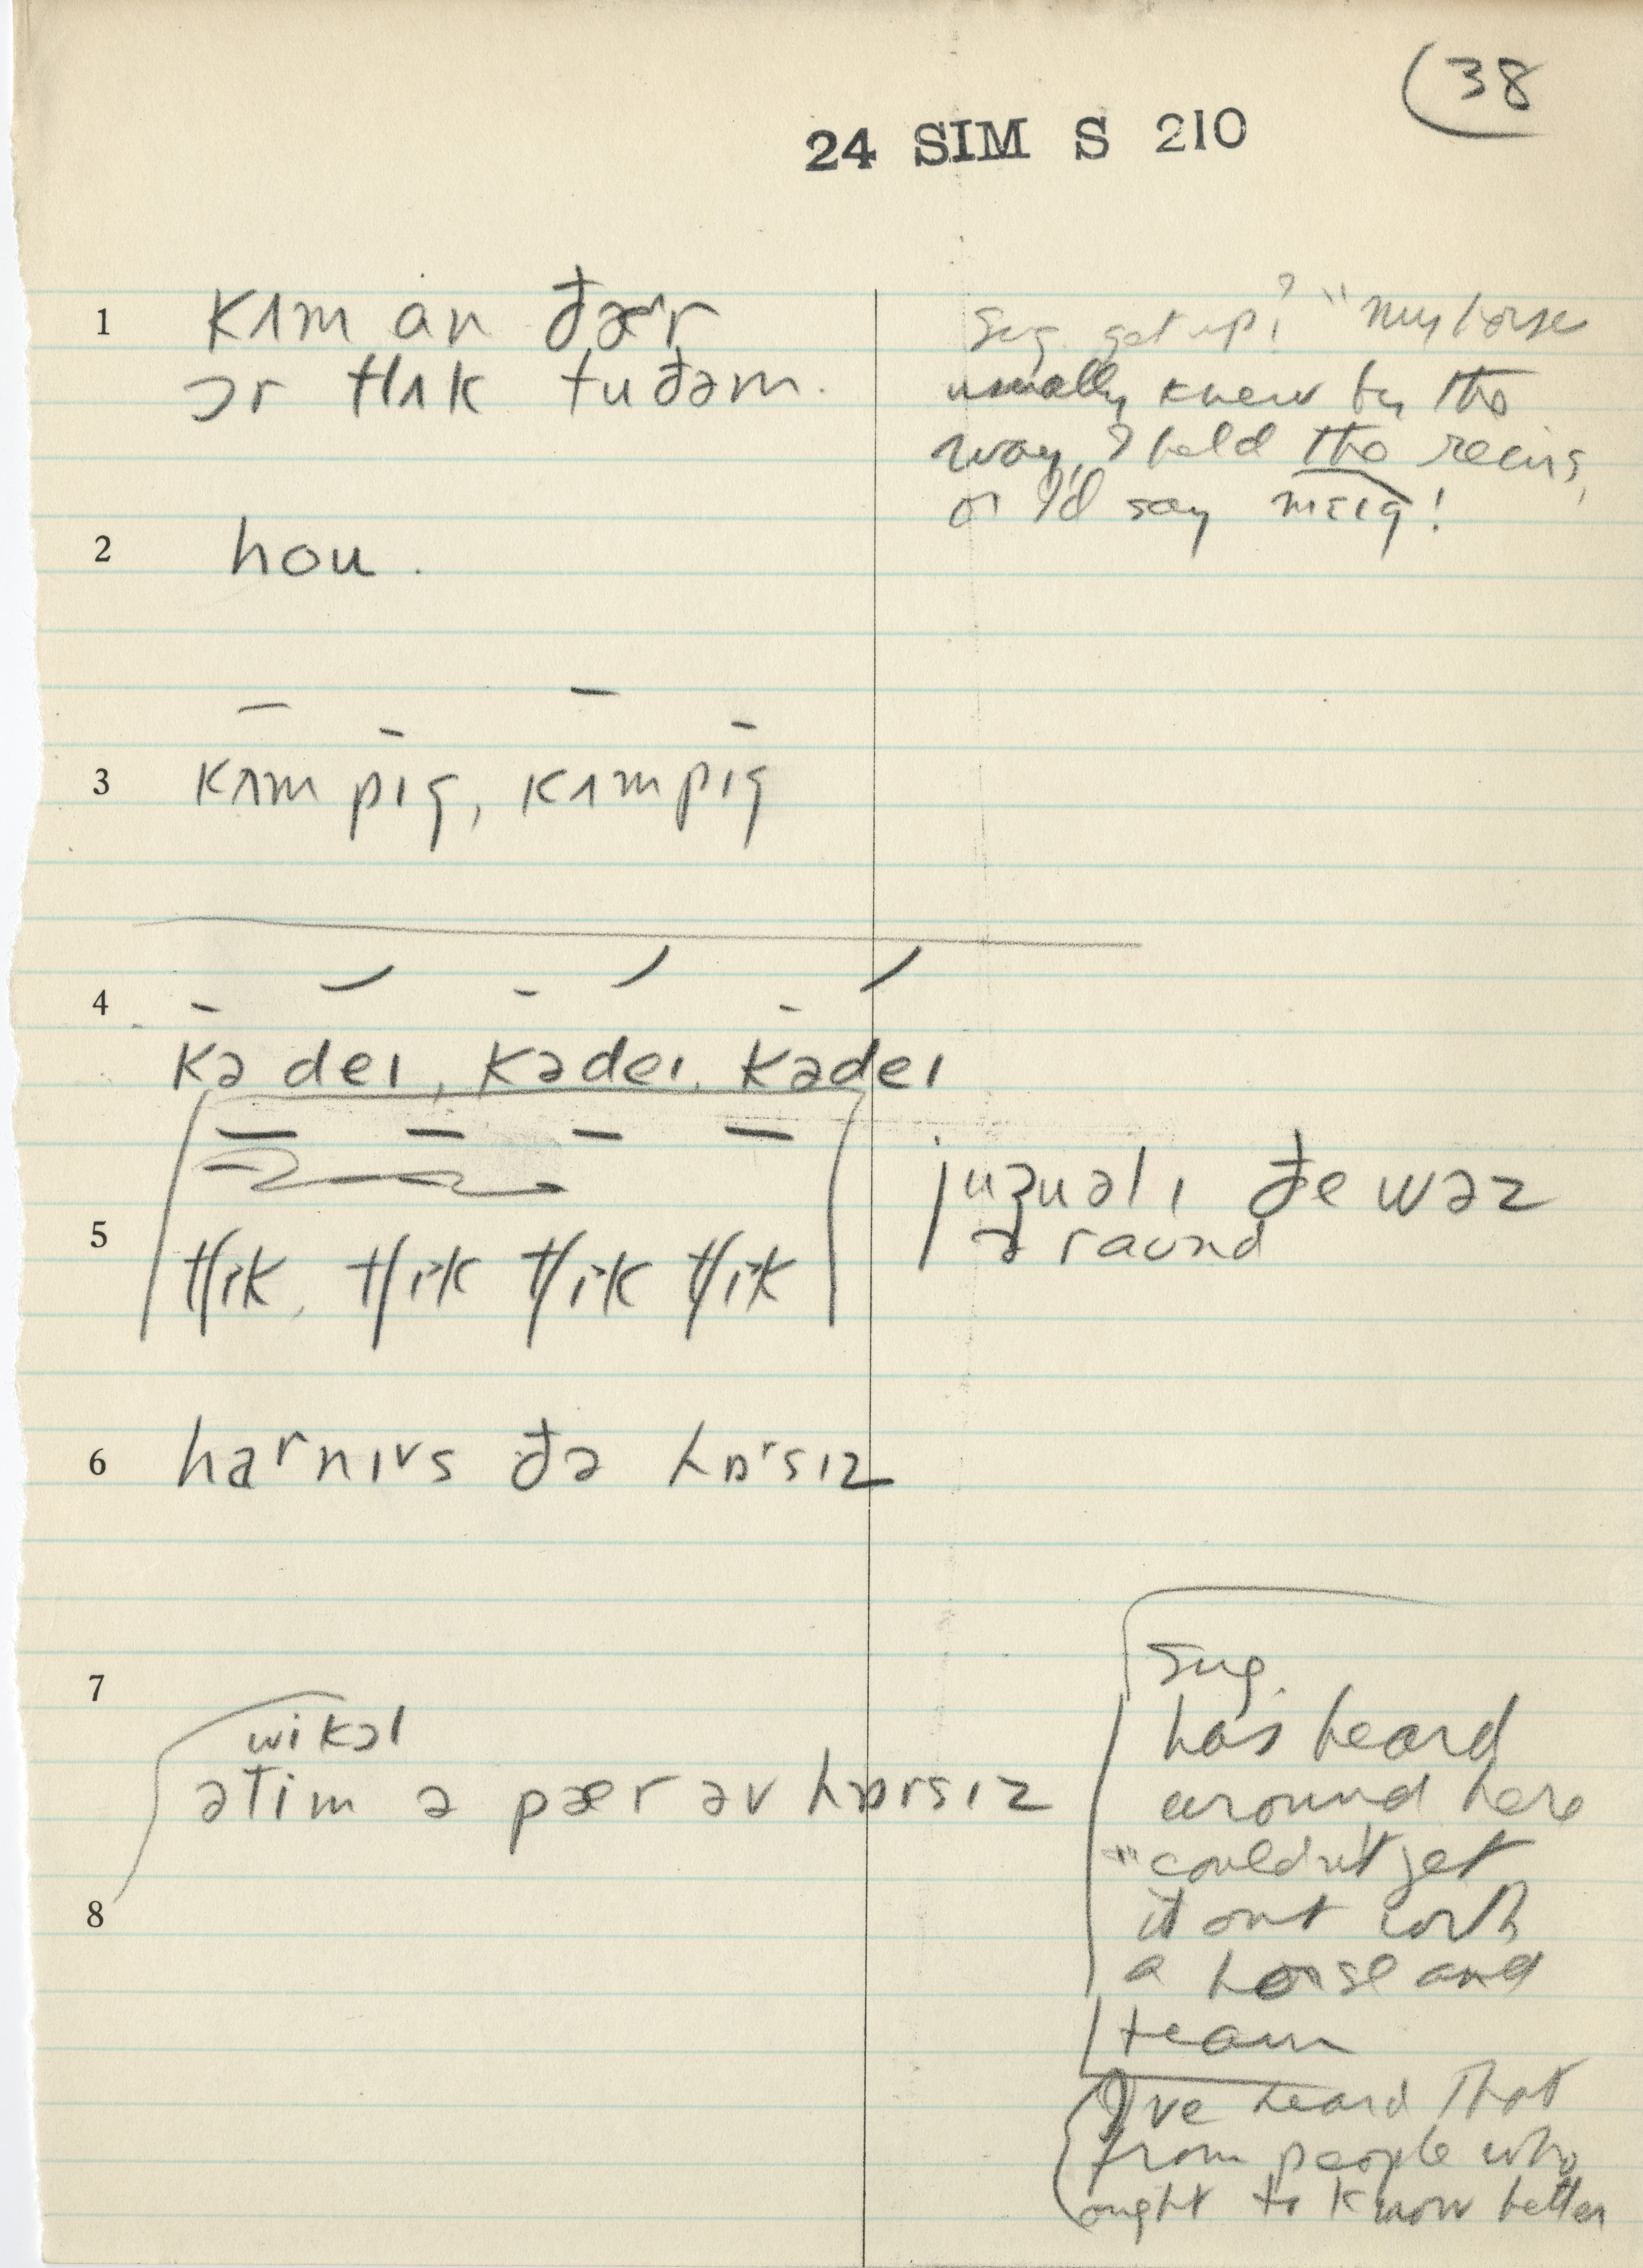 (38
24 SIM S 210
1 kʌm ɑn ðær
ɔr tlʌk tu ðəm.
Sug. get up? "my horse
usually knew by the
way I held the reins,
or I'd say mɛɪg!
2 hou.
3 kʌm pɪg, kʌm pɪg
4 kə deɪ, kə deɪ, kə deɪ
5 tʃɪk, tʃɪk tʃɪk tʃɪk
juʒuəlɪ ðe wəz
əraund
6 harnɪs ðə hɒrsɪz
7 wikəl
ətim ə pær əv hɒrsɪz
8
Sug.
has heard
around here
"couldn't get
it out with
a horse and
team
I've heard that
from people who
ought to know better